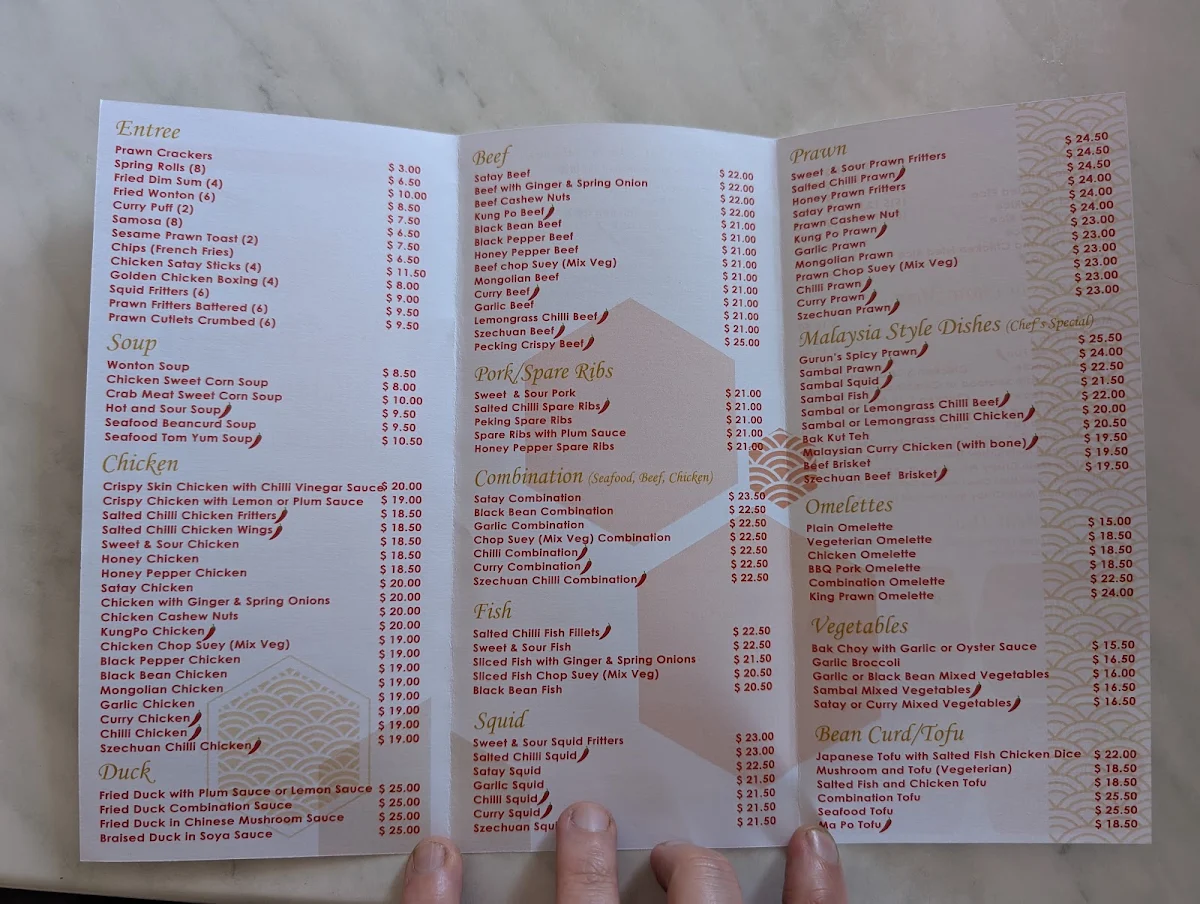 Entree
Prawn Crackers $ 3.00
Spring Rolls (8) $ 6.50
Fried Dim Sum (4) $ 10.00
Fried Wonton (6) $ 8.50
Curry Puff (2) $ 7.50
Samosa (8) $ 6.50
Sesame Prawn Toast (2) $ 7.50
Chips (French Fries)
Chicken Satay Sticks (4) $ 11.50
Golden Chicken Boxing (4) $ 8.00
Squid Fritters (6) $ 9.00
Prawn Fritters Battered (6) $ 9.50
Prawn Cutlets Crumbed (6) $ 9.50
Soup
Wonton Soup $ 8.50
Chicken Sweet Corn Soup $ 8.00
Crab Meat Sweet Corn Soup $ 10.00
Hot and Sour Soup $ 9.50
Seafood Beancurd Soup $ 9.50
Seafood Tom Yum Soup $ 10.50
Chicken
Crispy Skin Chicken with Chilli Vinegar Sauce $ 20.00
Crispy Chicken with Lemon or Plum Sauce $ 19.00
Salted Chilli Chicken Fritters $ 18.50
Salted Chilli Chicken Wings $ 18.50
Sweet & Sour Chicken $ 18.50
Honey Chicken $ 18.50
Honey Pepper Chicken $ 18.50
Satay Chicken $ 20.00
Chicken with Ginger & Spring Onions $ 20.00
Chicken Cashew Nuts $ 20.00
KungPo Chicken $ 20.00
Chicken Chop Suey (Mix Veg) $ 19.00
Black Pepper Chicken $ 19.00
Black Bean Chicken $ 19.00
Mongolian Chicken $ 19.00
Garlic Chicken $ 19.00
Curry Chicken $ 19.00
Chilli Chicken $ 19.00
Szechuan Chilli Chicken $ 19.00
Duck
Fried Duck with Plum Sauce or Lemon Sauce $ 25.00
Fried Duck Combination Sauce $ 25.00
Fried Duck in Chinese Mushroom Sauce $ 25.00
Braised Duck in Soya Sauce $ 25.00
Beef
Satay Beef $ 22.00
Beef with Ginger & Spring Onion $ 22.00
Beef Cashew Nuts $ 22.00
Kung Po Beef $ 22.00
Black Bean Beef $ 21.00
Black Pepper Beef $ 21.00
Honey Pepper Beef $ 21.00
Beef chop Suey (Mix Veg) $ 21.00
Mongolian Beef $ 21.00
Curry Beef $ 21.00
Garlic Beef $ 21.00
Lemongrass Chilli Beef $ 21.00
Szechuan Beef $ 21.00
Pecking Crispy Beef $ 25.00
Pork/Spare Ribs
Sweet & Sour Pork $ 21.00
Salted Chilli Spare Ribs $ 21.00
Peking Spare Ribs $ 21.00
Spare Ribs with Plum Sauce $ 21.00
Honey Pepper Spare Ribs $ 21.00
Combination (Seafood, Beef, Chicken)
Satay Combination $ 23.50
Black Bean Combination $ 22.50
Garlic Combination $ 22.50
Chop Suey (Mix Veg) Combination $ 22.50
Chilli Combination $ 22.50
Curry Combination $ 22.50
Szechuan Chilli Combination $ 22.50
Fish
Salted Chilli Fish Fillets $ 22.50
Sweet & Sour Fish $ 22.50
Sliced Fish with Ginger & Spring Onions $ 21.50
Sliced Fish Chop Suey (Mix Veg) $ 20.50
Black Bean Fish $ 20.50
Squid
Sweet & Sour Squid Fritters $ 23.00
Salted Chilli Squid $ 23.00
Satay Squid $ 22.50
Garlic Squid $ 21.50
Chilli Squid $ 21.50
Curry Squid $ 21.50
Szechuan Squ $ 21.50
Prawn
Sweet & Sour Prawn Fritters $ 24.50
Salted Chilli Prawn $ 24.50
Prawn Fritters $ 24.50
Satay Prawn $ 24.00
Prawn Cashew Nut $ 24.00
Kung Po Prawn $ 24.00
Garlic Prawn $ 23.00
Mongolian Prawn $ 23.00
Prawn Chop Suey (Mix Veg) $ 23.00
Chilli Prawn $ 23.00
Curry Prawn $ 23.00
Szechuan Prawn $ 23.00
Malaysia Style Dishes (Chef's Special)
Gurun's Spicy Prawn $ 25.50
Sambal Prawn $ 24.00
Sambal Squid $ 22.50
Sambal Fish $ 21.50
Sambal or Lemongrass Chilli Beef $ 22.00
Sambal or Lemongrass Chilli Chicken $ 20.00
Bak Kut Teh $ 20.50
Malaysian Curry Chicken (with bone) $ 19.50
Beef Brisket $ 19.50
Szechuan Beef Brisket $ 19.50
Omelettes
Plain Omelette $ 15.00
Vegeterian Omelette $ 18.50
Chicken Omelette $ 18.50
BBQ Pork Omelette $ 18.50
Combination Omelette $ 22.50
King Prawn Omelette $ 24.00
Vegetables
Bak Choy with Garlic or Oyster Sauce $ 15.50
Garlic Broccoli $ 16.50
Garlic or Black Bean Mixed Vegetables $ 16.00
Sambal Mixed Vegetables $ 16.50
Satay or Curry Mixed Vegetables $ 16.50
Bean Curd/Tofu
Japanese Tofu with Salted Fish Chicken Dice $ 22.00
Mushroom and Tofu (Vegeterian) $ 18.50
Salted Fish and Chicken Tofu $ 18.50
Combination Tofu $ 25.50
Seafood Tofu $ 25.50
Ma Po Tofu $ 18.50